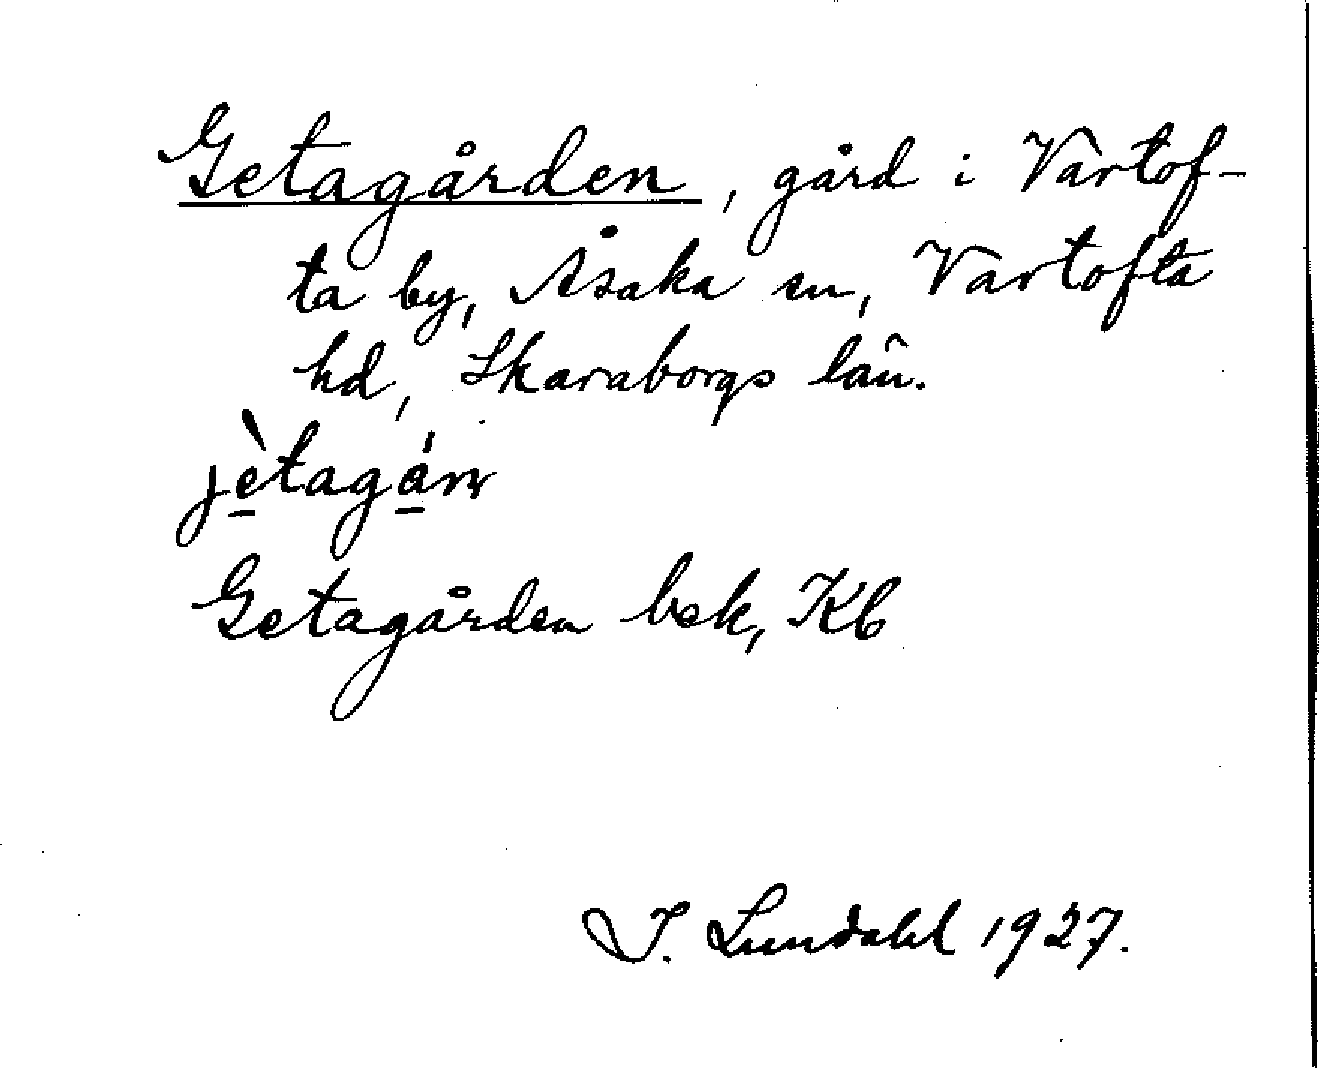 Getagården, gård i Vartof-
ta by, Åsaka sn, Vartofta
hd, Skaraborgs län.
jètagá̱rn
Getagården bek, Kb
I. Lundahl 1927.